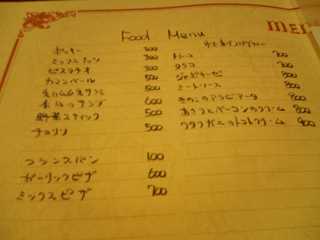 MEN
Food Menu
ポッキー 300
ミックスナッツ 300
ピスタチオ 300
カマンベール 500
生ハム&生サラミ 500
本日のサラダ 600
野菜スティック 500
チョリソ 500
フランスパン 100
ガーリックピザ 600
ミックスピザ 700
700
タラコ 700
ジャポネーゼ 800
ミートソース 800
きのこのアラビアータ 800
あさりとベーコンのクリーム 800
ワタリガニのトマトクリーム 900